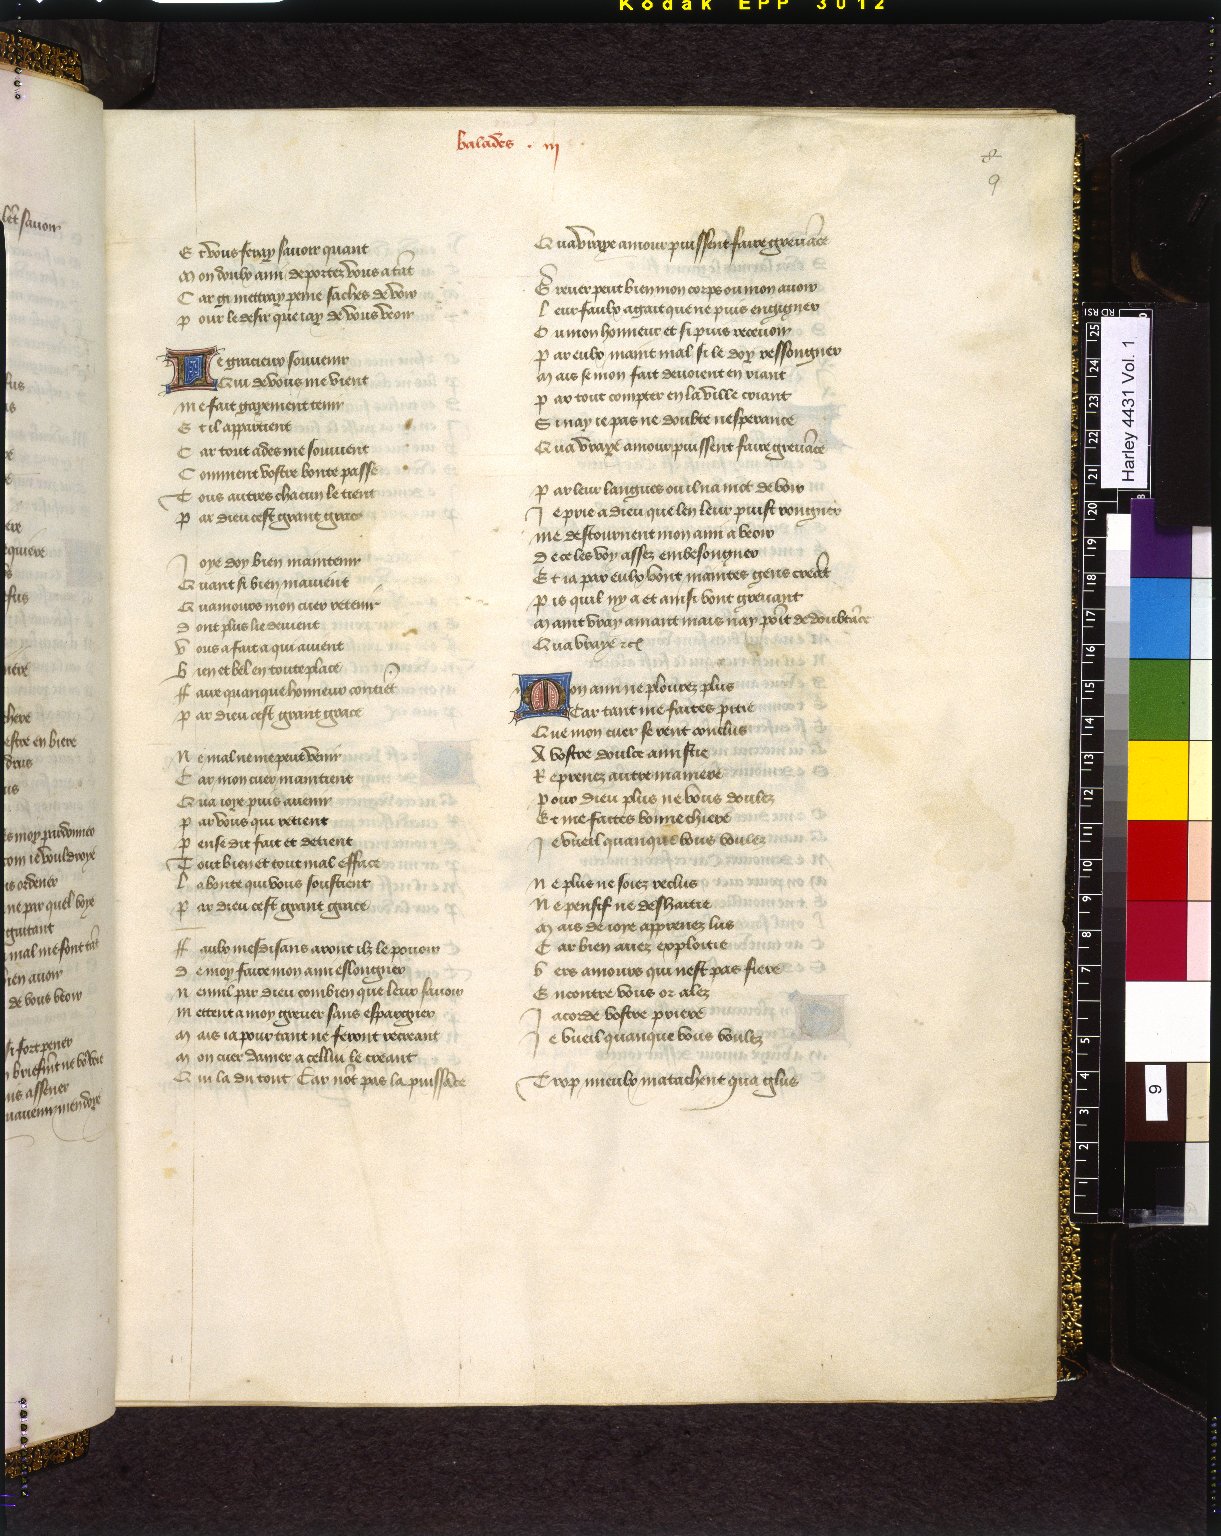 Kodak EPP 3012
balades . iii
8
9
Et vous feray savoir quant
Mon doulx ami deportez vous a tāt
Car gi mettray peine saches de voir
Pour le desir que iay de vous veoir
Le gracieux souvenir
Qui de vous me vient
Me fait gayement tenir
Et il appartient
Car tout ades me souvient
Comment vostre bonte passe
Tous autres chacun le tient
Par dieu cest grant grace
Joye doy bien maintenir
Quant si bien mavient
Quamours mon cuer retenir
Dont plus lie devient
Vous a fait a qui avient
Bien et bel en toute place
Faire quanque honneur contiēt
Par dieu cest grant grace
Ne mal ne me peut venir
Car mon cuer maintient
Qua ioye puis avenir
Par vous qui retient
Pense dit fait et detient
Tout bien et tout mal efface
La bonte qui vous soustient
Par dieu cest grant grace
Faulx mesdisans aront ilz le pouoir
De moy faire mon ami eslongner
Nennil par dieu combien que leur savoir
Mettent a moy grever sans espargner
Mais ia pour tant ne feront recreant
Mon cuer damer a cellui le creant
Qui la du tout Car nōt pas la puissāce
Qua vraye amour puissent faire grevāce
Grever peut bien mon corps ou mon avoir
Leur faulx agait que ne puis engigner
Ou mon honneur et si puis recevoir
Par eulx maint mal si le doy ressongner
Mais se mon fait devoient en riant
Par tout compter en la ville criant
Si nay ie pas ne doubte nesperance
Qua vraye amour puissent faire grevāce
Par leur langues ou il na mot de voir
Je prie a dieu que len leur puist rongner
Me destournent mon ami a veoir
De ce les voy assez embesongner
Et ia par eulx vont maintes gens creāt
Pis quil ny a et ainsi vont grevant
Maint vray amant mais nay poīt de doubtāce
Qua vraye etc
Mon ami ne plourez plus
Car tant me faites pitie
Que mon cuer se rent conclus
A vostre doulce amistie
Reprenez autre maniere
Pour dieu plus ne vous doulez
Et me faites bonne chiere
Je vueil quanque vous voulez
Ne plus ne soiez reclus
Ne pensif ne deshaitie
Mais de ioye apprenez lus
Car bien avez exploitie
Vers amours qui nest pas fiere
Encontre vous or alez
Jacorde vostre priere
Je vueil quanque vous voulez
Trop mieulx matachent qua glus
Harley 4431 Vol. 1
9